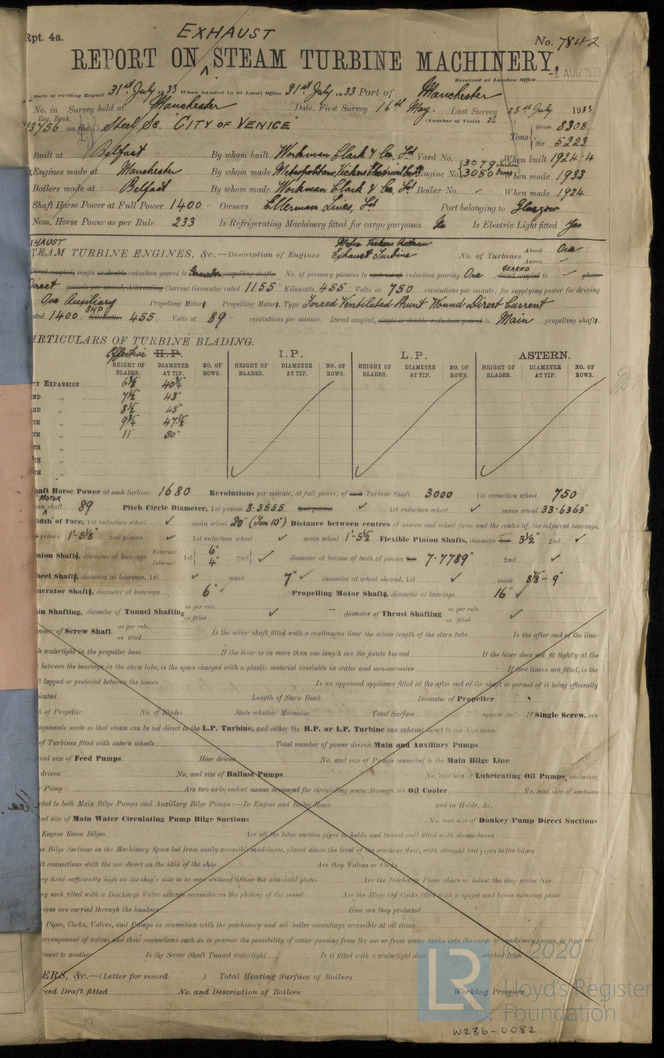 Rpt. 4a.
EXHAUST
No. 7842
REPORT ON STEAM TURBINE MACHINERY.
Received at London Office -1 AUG 1933
Date of writing Report 31st July 1933 When handed in at Local Office 31st July 1933 Port of Manchester
No. in Survey held at Manchester Date, First Survey 16th May Last Survey 28th July 1933
Reg. Book. (Number of Visits
on the Steel Sc. "CITY OF VENICE"
Tons Gross 8308
Net 5223
Built at Belfast By whom built Workman Clark & Co. Ld. Yard No. When built 1924-4
Engines made at Manchester By whom made Metropolitan Vickers Electrical Co. Ld. Engine No. 3079 3080 When made 1933
Boilers made at Belfast By whom made Workman Clark & Co. Ld. Boiler No. When made 1924
Shaft Horse Power at Full Power 1400 Owners Ellerman Lines, Ld. Port belonging to Glasgow
Nom. Horse Power as per Rule 233 Is Refrigerating Machinery fitted for cargo purposes No Is Electric Light fitted Yes
EXHAUST
STEAM TURBINE ENGINES, &c.—Description of Engines Exhaust Turbine No. of Turbines Ahead One
Astern
single reduction geared to propelling shafts. No. of primary pinions to reduction gearing One
Direct Current Generator rated 1155 Kilowatts 455 Volts at 750 revolutions per minute, for supplying power for driving
One Auxiliary Propelling Motors, Type Forced Ventilated Shunt Wound Direct Current
rated 1400 BHP 455 Volts at 89 revolutions per minute. Direct coupled, single or double reduction geared to Main propelling shafts.
PARTICULARS OF TURBINE BLADING.
Effective H.P. I.P. L.P. ASTERN.
HEIGHT OF BLADES. DIAMETER AT TIP. NO. OF ROWS. HEIGHT OF BLADES. DIAMETER AT TIP. NO. OF ROWS. HEIGHT OF BLADES. DIAMETER AT TIP. NO. OF ROWS. HEIGHT OF BLADES. DIAMETER AT TIP. NO. OF ROWS.
EXPANSION
11 50"
Shaft Horse Power at each turbine 1680 Revolutions per minute, at full power, of Turbine Shaft 3000 1st reduction wheel 750
MOTOR
main shaft 89 Pitch Circle Diameter, 1st pinion 8.3555 1st reduction wheel main wheel 33.6363"
Width of Face, 1st reduction wheel main wheel 20" (Two 10") Distance between centres of pinion and wheel faces and the centre of the adjacent bearings,
pinion 1'-5⅛" 2nd pinion 1st reduction wheel main wheel 1'-5½" Flexible Pinion Shafts, diameter 3½" 2nd
Pinion Shafts, diameter at bearings External 1st 6" 2nd diameter at bottom of teeth of pinion 7.7789" 2nd
Internal 4"
Wheel Shafts, diameter at bearings, 1st main 7" diameter at wheel shroud, 1st main 8⅞ - 9"
Generator Shaft, diameter at bearings 6" Propelling Motor Shaft, diameter at bearings 16"
Shafting, diameter of Tunnel Shafting as per rule as fitted diameter of Thrust Shafting as per rule as fitted
diameter of Screw Shaft as per rule as fitted Is the screw shaft fitted with a continuous liner the whole length of the stern tube Is the after end of the liner
watertight in the propeller boss If the liner is in more than one length are the joints burned If the liner does not fit tightly at the
between the bearings in the stern tube, is the space charged with a plastic material insoluble in water and non-corrosive If two liners are fitted, is the
lapped or protected between the liners Is an approved appliance fitted at the after end of the shaft to permit of it being efficiently
Length of Stern Bush Diameter of Propeller
of Propeller No. of Blades State whether Moveable Total Surface square feet If Single Screw, are
arrangements made so that steam can be led direct to the L.P. Turbine, and either the H.P. or I.P. Turbine can exhaust direct to the Condenser
of Turbines fitted with astern wheels Total number of power driven Main and Auxiliary Pumps
and size of Feed Pumps How driven No. and size of Pumps connected to the Main Bilge Line
driven No. and size of Ballast Pumps No. and size of Lubricating Oil Pumps, including
Pump Are two independent means arranged for circulating water through the Oil Cooler No. and size of suctions
to both Main Bilge Pumps and Auxiliary Bilge Pumps:—In Engine and Boiler Room and in Holds, &c.
and size of Main Water Circulating Pump Bilge Suctions No. and size of Donkey Pump Direct Suctions
Engine Room Bilges Are all the bilge suction pipes in holds and tunnel well fitted with strumboxes
Bilge Suctions in the Machinery Space led from easily accessible mud-boxes, placed above the level of the working floor, with straight tail pipes to the bilges
connections with the sea direct on the skin of the ship Are they Valves or Cocks
fixed sufficiently high on the ship's side to be seen without lifting the stokehold plates Are the Discharge Pipes above or below the deep water line
each fitted with a Discharge Valve always accessible on the plating of the vessel Are the Blow Off Cocks fitted with a spigot and brass covering plate
pipes are carried through the bunkers How are they protected
Pipes, Cocks, Valves, and Pumps in connection with the machinery and all boiler mountings accessible at all times
arrangement of valves and their connections such as to prevent the possibility of water passing from the sea or from water tanks into the cargo or machinery spaces, or from
to another Is the Screw Shaft Tunnel watertight Is it fitted with a watertight door worked from
ERS, &c.—(Letter for record ) Total Heating Surface of Boilers
Forced Draft fitted No. and Description of Boilers Working Pressure
LR
© 2020
Lloyd's Register
Foundation
W236-0082